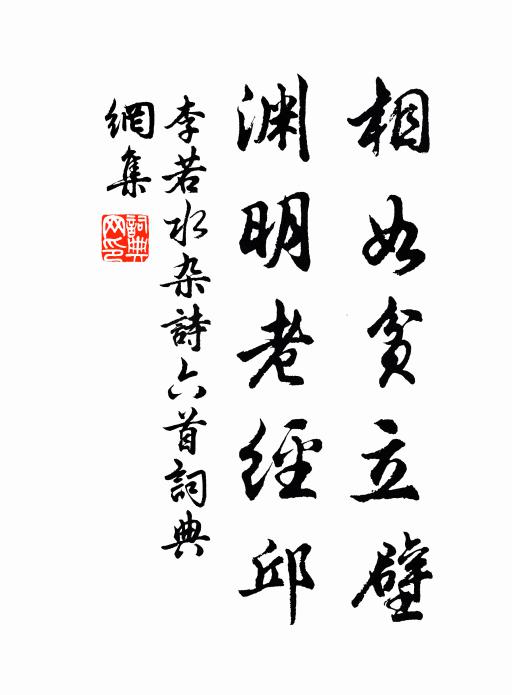 相如貧立壁
淵明老經邱
李若水杂詩六首詞典
網集
詞典網印